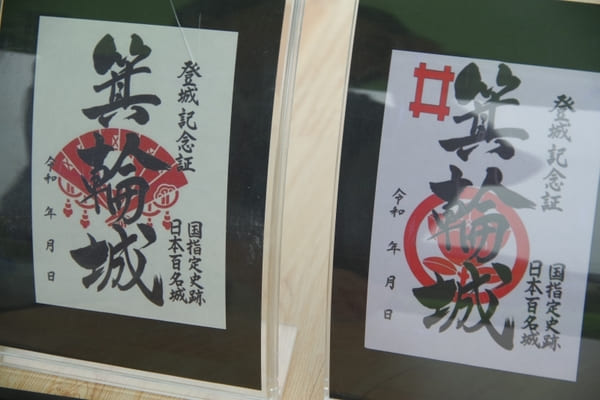 登城記念証
箕輪城
令和 年 月 日
国指定史跡
日本百名城
登城記念証
箕輪城
令和 年 月 日
国指定史跡
日本百名城